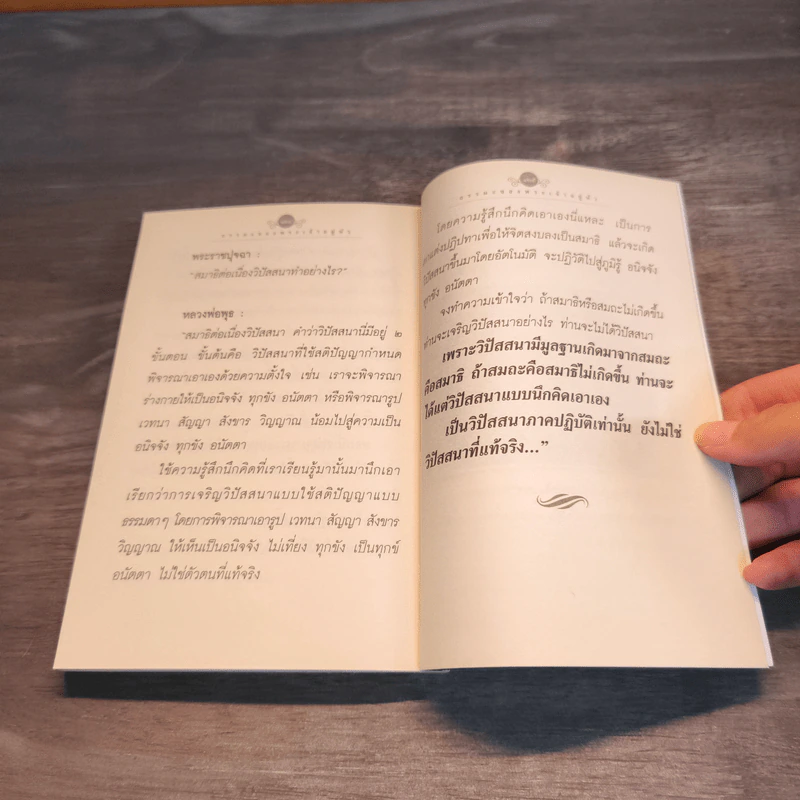 พระราชปุจฉา :
"สมาธิต่อเนื่องวิปัสสนาทำอย่างไร?"
หลวงพ่อพุธ :
"สมาธิต่อเนื่องวิปัสสนา คำว่าวิปัสสนานี่มีอยู่ ๒
ขั้นตอน ขั้นต้นคือ วิปัสสนาที่ใช้สติปัญญากำหนด
พิจารณาเอาเองด้วยความตั้งใจ เช่น เราจะพิจารณา
ร่างกายให้เป็นอนิจจัง ทุกขัง อนัตตา หรือพิจารณารูป
เวทนา สัญญา สังขาร วิญญาณ น้อมไปสู่ความเป็น
อนิจจัง ทุกขัง อนัตตา
ใช้ความรู้สึกนึกคิดที่เราเรียนรู้มานั้นมานึกเอา
เรียกว่าการเจริญวิปัสสนาแบบใช้สติปัญญาแบบ
ธรรมดาๆ โดยการพิจารณาเอารูป เวทนา สัญญา สังขาร
วิญญาณ ให้เห็นเป็นอนิจจัง ไม่เที่ยง ทุกขัง เป็นทุกข์
อนัตตา ไม่ใช่ตัวตนที่แท้จริง
โดยความรู้สึกนึกคิดเอาเองนี่แหละ เป็นการ
ปฏิปทาเพื่อให้จิตสงบลงเป็นสมาธิ แล้วจะเกิด
วิปัสสนาขึ้นมาโดยอัตโนมัติ จะปฏิวัติไปสู่ภูมิรู้ อนิจจัง
ทุกขัง อนัตตา
จงทำความเข้าใจว่า ถ้าสมาธิหรือสมถะไม่เกิดขึ้น
ท่านจะเจริญวิปัสสนาอย่างไร ท่านจะไม่ได้วิปัสสนา
เพราะวิปัสสนามีมูลฐานเกิดมาจากสมถะ
คือสมาธิ ถ้าสมถะคือสมาธิไม่เกิดขึ้น ท่านจะ
ได้แต่วิปัสสนาแบบนึกคิดเอาเอง
เป็นวิปัสสนาภาคปฏิบัติเท่านั้น ยังไม่ใช่
วิปัสสนาที่แท้จริง..."